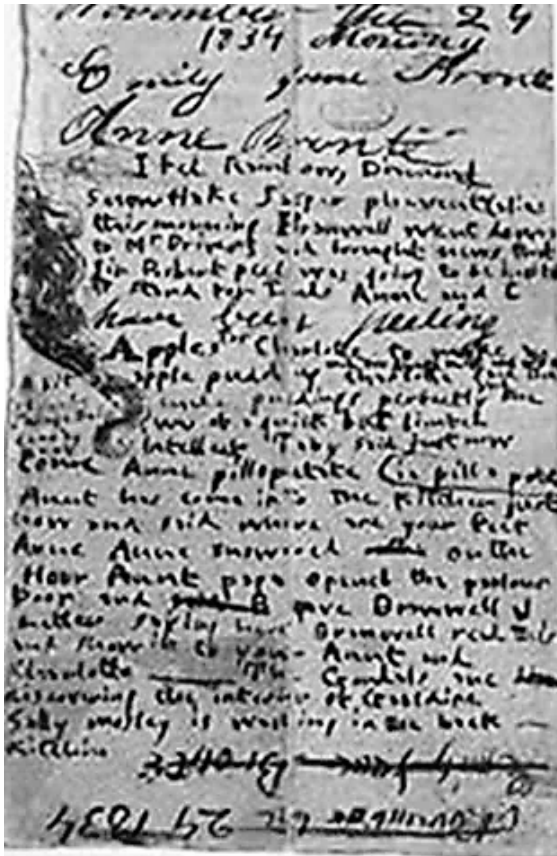 November the 24
1834 Monday
Emily Jane Bronte
Anne Bronte
I fed Rainbow, Diamond
Snowflake Jasper pheasent (alias
this morning Branwell went down
to Mr Drivers and brought news that
Sir Robert peel was going to be
to stand for Leeds Anne and I
have been peeling
Apples for Charlotte to make
apple pudding
made puddings perfectly she
was of a quick but limted
Intellect Taby said just now
come Anne pillopatate (in pill a potato
Aunt has come into the Kitchen just
now and said where are your feet
Anne Anne answered on the
floor Aunt papa opened the parlour
Door and gave Branwell a
letter saying here Branwell read this
and show it to your Aunt and
Charlotte The Gondals are
discovering the interior of Gaaldine
Sally mosley is washing in the back
Kitchin
Bronte
November the 24 1834